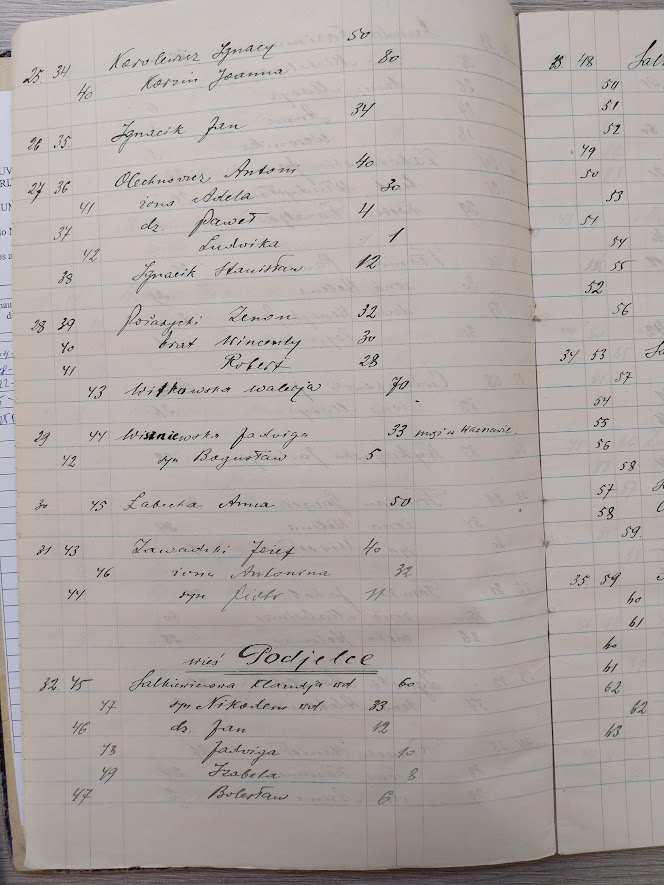 25 34 Karolewicz Ignacy 50
40 Korzin Joanna 80
26 35 Ignacik Jan 34
27 36 Olechnowicz Antoni 40
41 żona Adela 30
37 dz. Paweł 4
42 Ludwika 1
38 Ignacik Stanisław 12
28 39 Zenon 32
40 brat Wincenty 30
41 Robert 28
43 Witkowska Walerja 70
29 44 Wiszniewska Jadwiga 33 mąż w Warszawie.
42 syn Bogusław 5
30 45 Łabecka Anna 50
31 43 Zawadzki Józef 40
46 żona Antonina 32
44 syn Piotr 11
wieś Podjelce
32. 45 Salkiewiczowa Klaudja wd. 60
47 syn Nikodem wd. 33
46 dz. Jan 12
48 Jadwiga 10
49 Izabela 8
47 Bolesław 6
33. 48
50
51
52
49
50
53
51
54
55
52
56
34 53
57
54
55
56
58
57
58
59
35 59
60
61
60
61
62
62
63